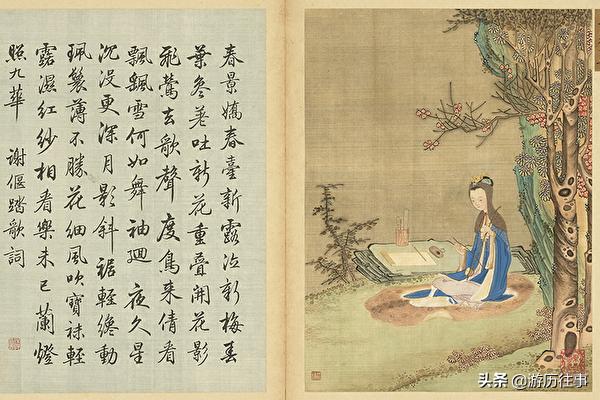 春景嬌春臺新露泣新梅春
葉參差吐新花重疊開花影
飛鶯去歌聲度鳥來倩看
飄颻雪何如舞袖迴夜久星
沉沒更深月影斜裙輕纔動
珮鬟薄不勝花細風吹寶袜輕
露濕紅紗相看樂未已蘭燈
照九華 謝偃踏歌詞
头条 @游历往事